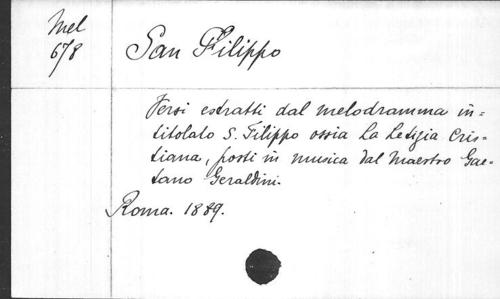 Mel
678
San Filippo
Versi estratti dal melodramma in-
titolato S. Filippo ossia La Letizia Cris-
tiana, posti in musica dal Maestro Gae-
tano Geraldini.
Roma. 1889.